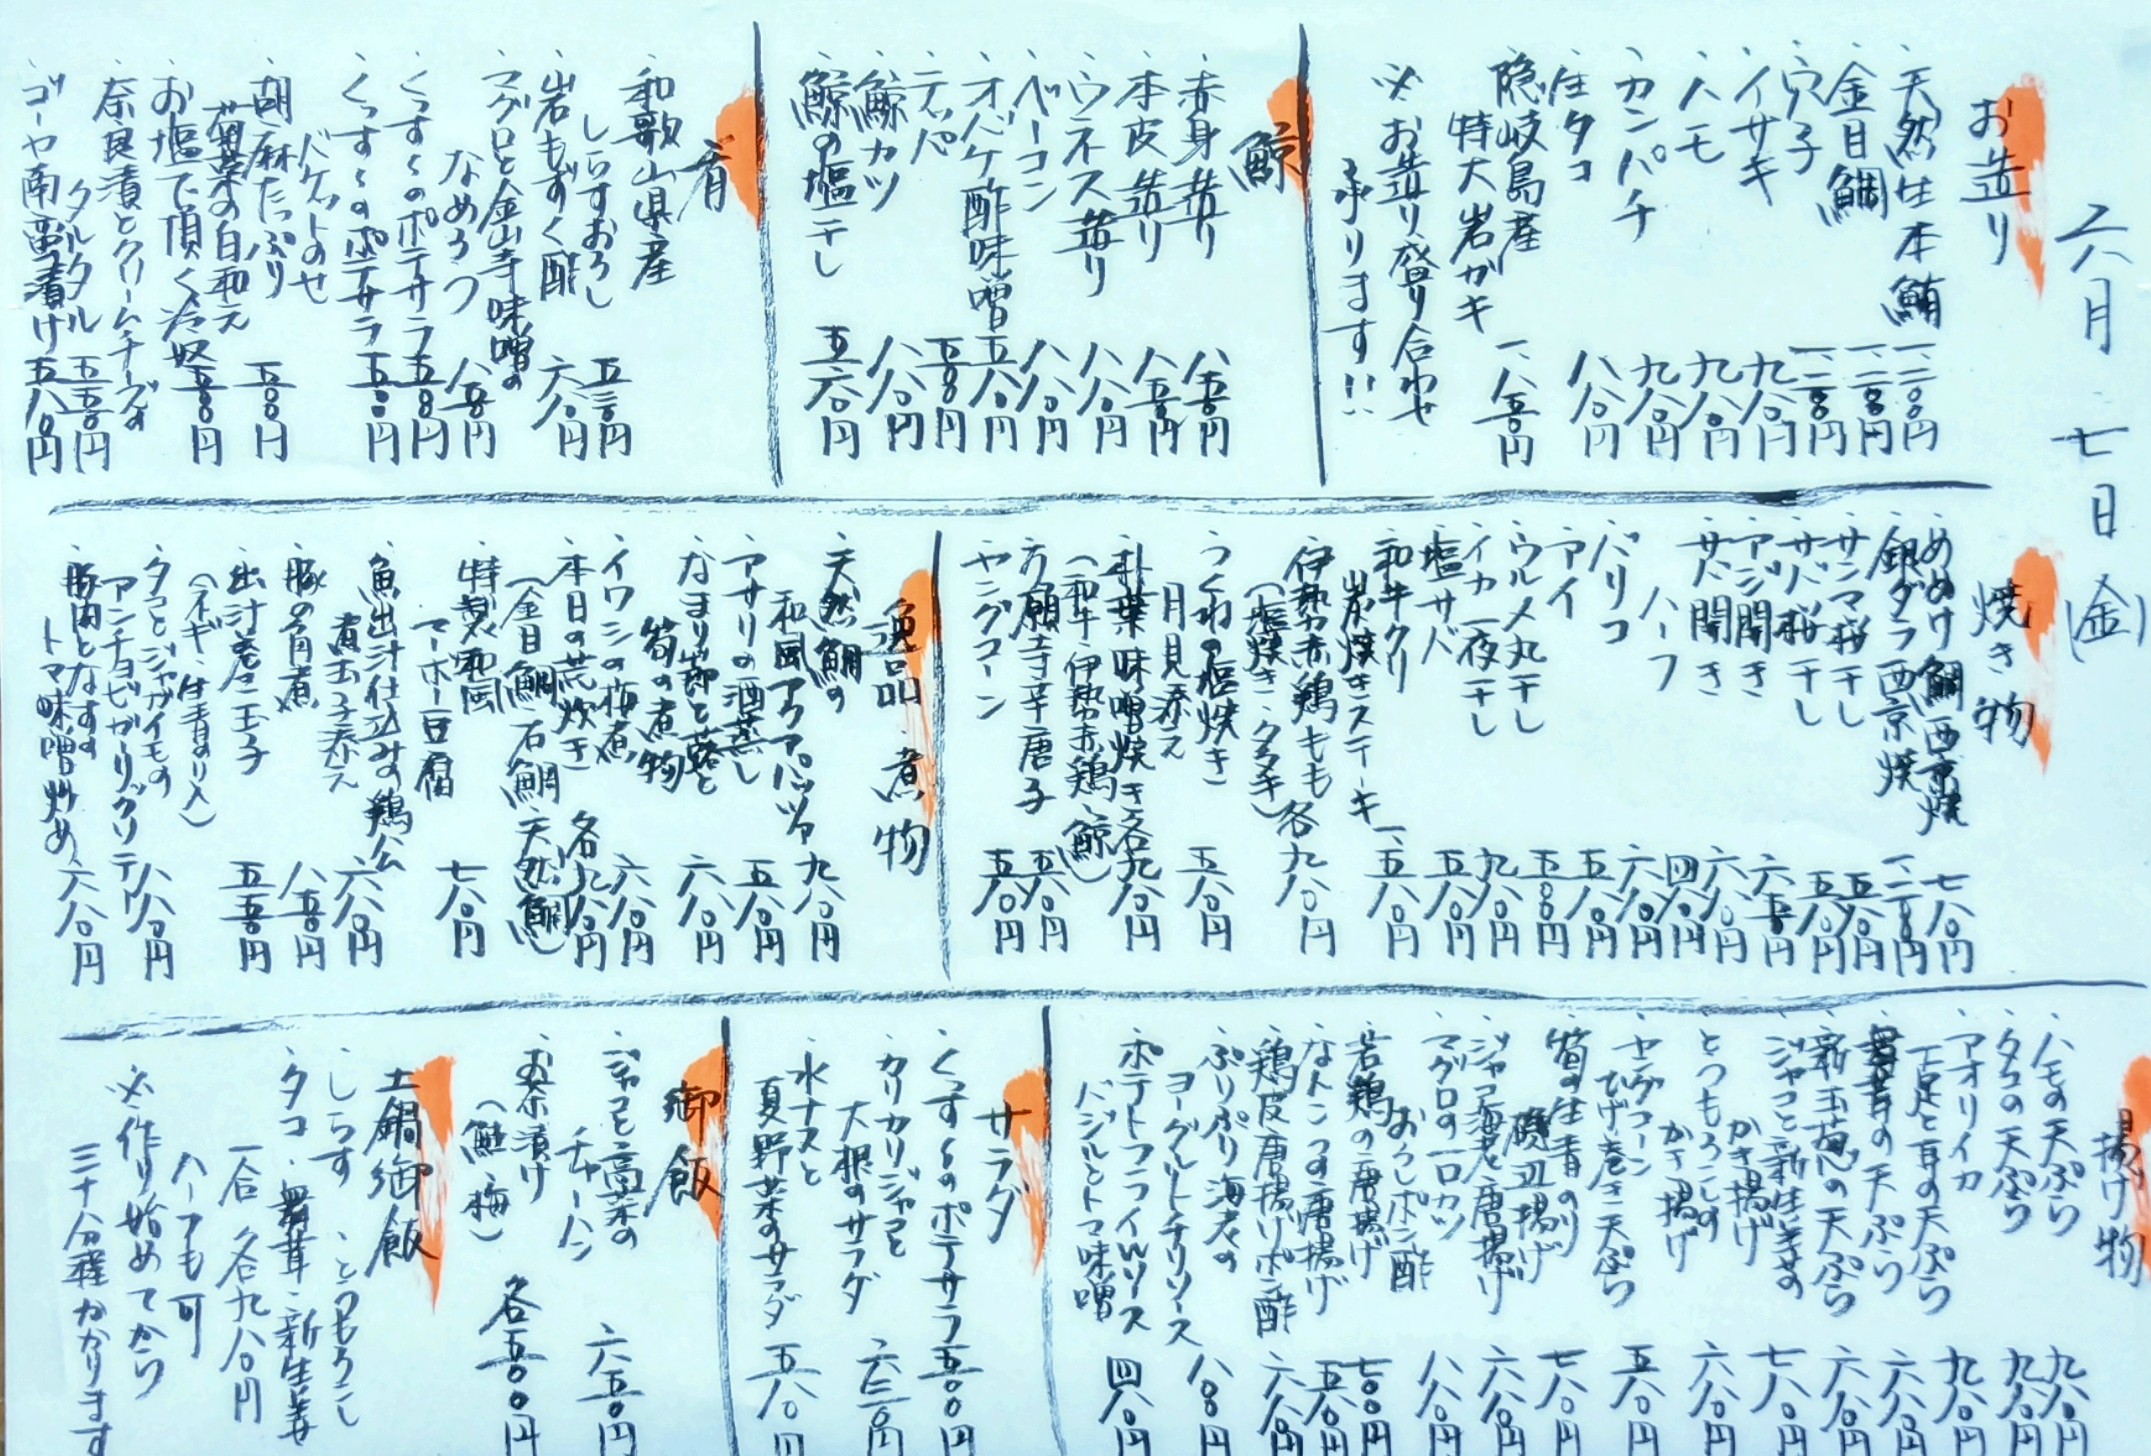 六月七日(金)
お造り
、天然生本鮪 一、二〇〇円
、金目鯛
、穴子
、イサキ 九八〇円
、ハモ 九八〇円
、カンパチ 九八〇円
、生タコ 八八〇円
、隠岐島産
特大岩ガキ 一、八五〇円
※お造り盛り合わせ
承ります!!
鯨
、赤身造り 八五〇円
、本皮造り 八五〇円
、ウネス造り 八八〇円
、ベーコン 八八〇円
、オバケ酢味噌 五八〇円
、テッパ 五〇〇円
、鯨カツ 八八〇円
、鯨の塩干し
肴
、和歌山県産
しらすおろし
、岩もずく酢 六八〇円
、マグロと金山寺味噌の
なめろう 八五〇円
、くっすんのポテサラ 五五〇円
、くっすんのポテサラ
バケットのせ
、胡麻たっぷり
菊菜の白和え 五〇〇円
、お塩で頂く冷奴
、奈良漬とクリームチーズの
タルタル 五五〇円
、ゴーヤ南蛮漬け 五八〇円
焼き物
、めぬけ鯛西京焼 七八〇円
、銀ダラ西京焼
、サンマ桜干し 五八〇円
、サバ桜干し 五八〇円
、アジ開き
、サバ開き 六八〇円
ハーフ 四八〇円
、バリコ 六八〇円
、アイ 五八〇円
、ウルメ丸干し 五〇〇円
、イカ一夜干し 九八〇円
、塩サバ 五八〇円
、和牛クリ
炭焼きステーキ 一、五八〇円
、伊勢赤鶏もも 各九八〇円
(塩焼き・タタキ)
、つくねの塩焼き
月見添え 五八〇円
、朴葉味噌焼き 各九八〇円
(和牛・伊勢赤鶏・鯨)
、万願寺辛唐子 五八〇円
、ヤングコーン 五八〇円
逸品・煮物
、天然鯛の
和風アクアパッツァ 九八〇円
、アサリの酒蒸し 五八〇円
、なまり節と蕗と
筍の煮物 六八〇円
、イワシの梅煮 六八〇円
、本日の荒炊き 各九八〇円
(金目鯛・石鯛・天然鯛)
、特製和風
マーボー豆腐 七八〇円
、魚出汁仕込みの鶏公
煮玉子添え 六八〇円
、豚の角煮 八五〇円
、出汁巻き玉子 五五〇円
(ネギ・生青のり入)
、タコとジャガイモの
アンチョビガーリックソテー 八八〇円
、豚肉となすの
トマ味噌炒め 六八〇円
揚げ物
、ハモの天ぷら 九八〇円
、タコの天ぷら 九八〇円
、アオリイカ
下足と耳の天ぷら 九八〇円
、舞茸の天ぷら 六八〇円
、新玉葱の天ぷら 六八〇円
、ジャコと新生姜の
かき揚げ 七八〇円
、とうもろこしの
かき揚げ 六八〇円
、ヤングコーン
ひげ巻き天ぷら 五八〇円
、筍の生青のり
磯辺揚げ 七八〇円
、ジャコ海老唐揚げ 六八〇円
、マグロの一口カツ
おろしポン酢 八八〇円
、若鶏の唐揚げ 七〇〇円
、なんこつの唐揚げ 五八〇円
、鶏皮唐揚げポン酢 六八〇円
、ぷりぷり海老の
ヨーグルトチリソース 八八〇円
、ポテトフライWソース
バジルとトマ味噌 四八〇円
サラダ
、くっすんのポテサラ 五五〇円
、カリカリジャコと
大根のサラダ
、水ナスと
夏野菜のサラダ 五八〇円
御飯
、ジャコと高菜の
チャーハン 六五〇円
、お茶漬け
(鮭・梅) 各五〇〇円
土鍋御飯
、しらす・とうもろこし
、タコ・舞茸・新生姜
一合 各九八〇円
ハーフも可
※作り始めてから
三十分程かかります